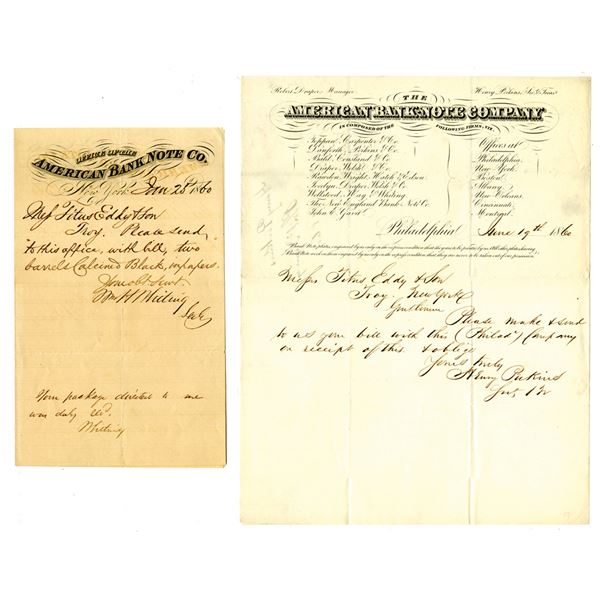 OFFICE OF THE
AMERICAN BANK NOTE CO.
New York, Jan 28 1860
Mess Titus Eddy & Son
Troy. Please send
to this office, with bill, two
barrels Calcined Black, in papers.
Your Obt Servt.
Wm H Whiting
Your package directed to me
was duly recd.
Whiting
Robert Draper, Manager
Henry Perkins, Sec. & Treas.
THE
AMERICAN BANK-NOTE COMPANY
IS COMPOSED OF THE FOLLOWING FIRMS, VIZ.
Toppan, Carpenter & Co.
Danforth, Perkins & Co.
Bald, Cousland & Co.
Draper, Welsh & Co.
Rawdon, Wright, Hatch & Edson.
Jocelyn, Draper, Welsh & Co.
Wellstood, Hay & Whiting.
The New England Bank Note Co.
John E. Gavit.
Offices at
Philadelphia.
New York.
Boston.
Albany.
New Orleans.
Cincinnati.
Montreal.
Philadelphia June 19th 1860
Messrs Titus Eddy & Son
Troy New York
Gentlemen
Please make & send
to us your bill with this (Philada) Company
on receipt of this & oblige
Yours truly
Henry Perkins